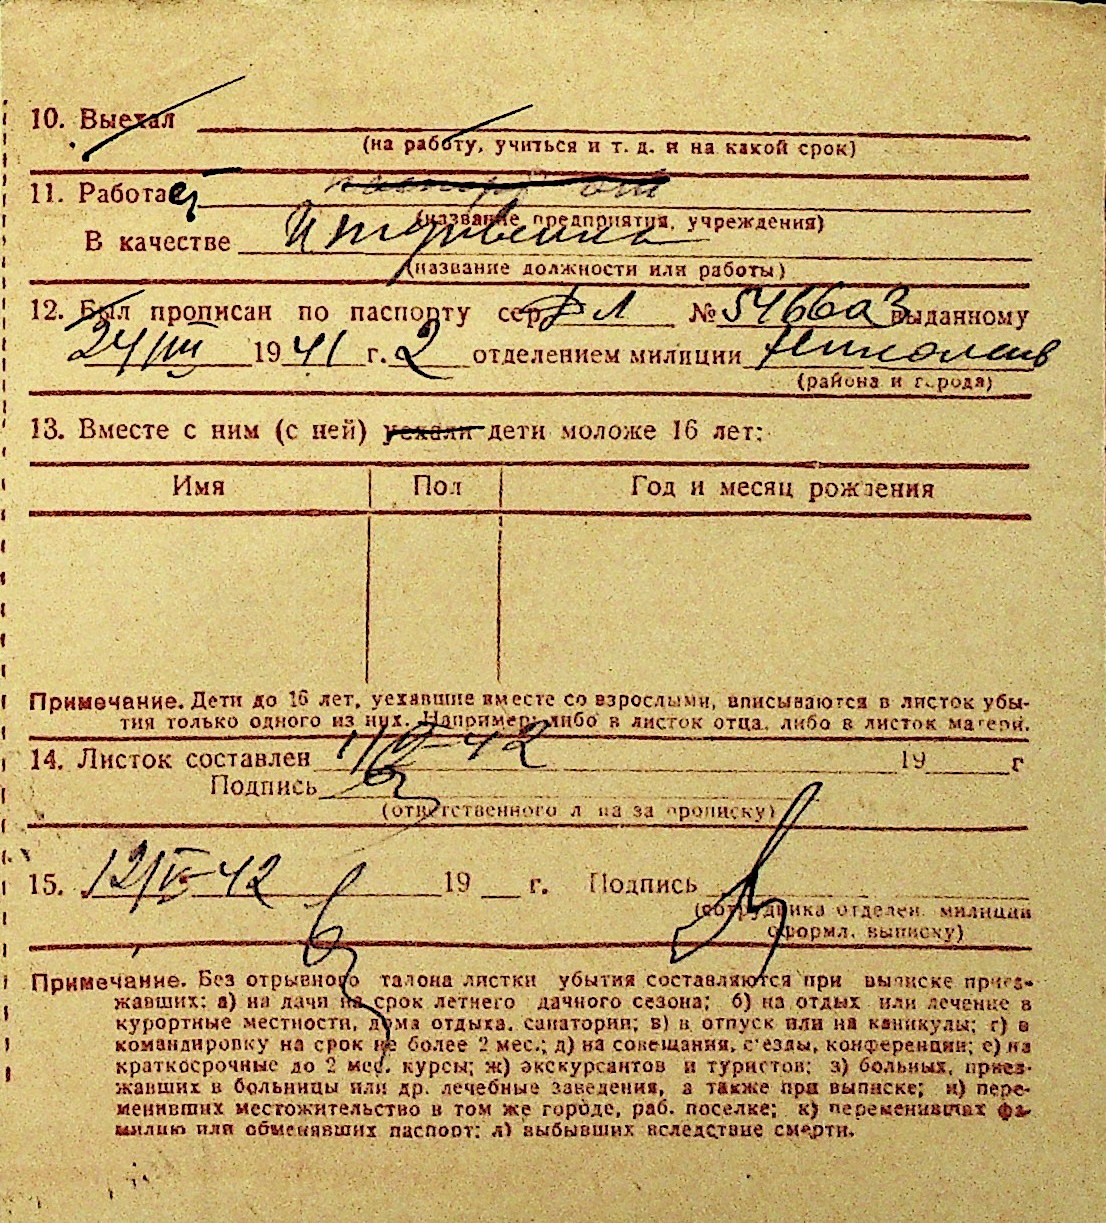 10. Выехал
(на работу, учиться и т. д. и на какой срок)
11. Работает
(название предприятия, учреждения)
В качестве Иждивенка
(название должности или работы)
12. Был прописан по паспорту сер. № 546603 выданному
24/III 1941 г. 2 отделением милиции Николаев
(района и города)
13. Вместе с ним (с ней) уехали дети моложе 16 лет:
Имя Пол Год и месяц рождения
Примечание. Дети до 16 лет, уехавшие вместе со взрослыми, вписываются в листок убы-
тия только одного из них. Например: либо в листок отца, либо в листок матери.
14. Листок составлен 11/VI-42 19 г
Подпись
(ответственного лица за прописку)
15. 12/VI-42 19 г. Подпись
(сотрудника отделен. милиции
оформл. выписку)
Примечание. Без отрывного талона листки убытия составляются при выписке приез-
жавших: а) на дачи на срок летнего дачного сезона; б) на отдых или лечение в
курортные местности, дома отдыха, санатории; в) в отпуск или на каникулы; г) в
командировку на срок не более 2 мес.; д) на совещания, с'езды, конференции; е) на
краткосрочные до 2 мес. курсы; ж) экскурсантов и туристов; з) больных, приез-
жавших в больницы или др. лечебные заведения, а также при выписке; и) пере-
менивших местожительство в том же городе, раб. поселке; к) переменивших фа-
милию или обменявших паспорт; л) выбывших вследствие смерти.